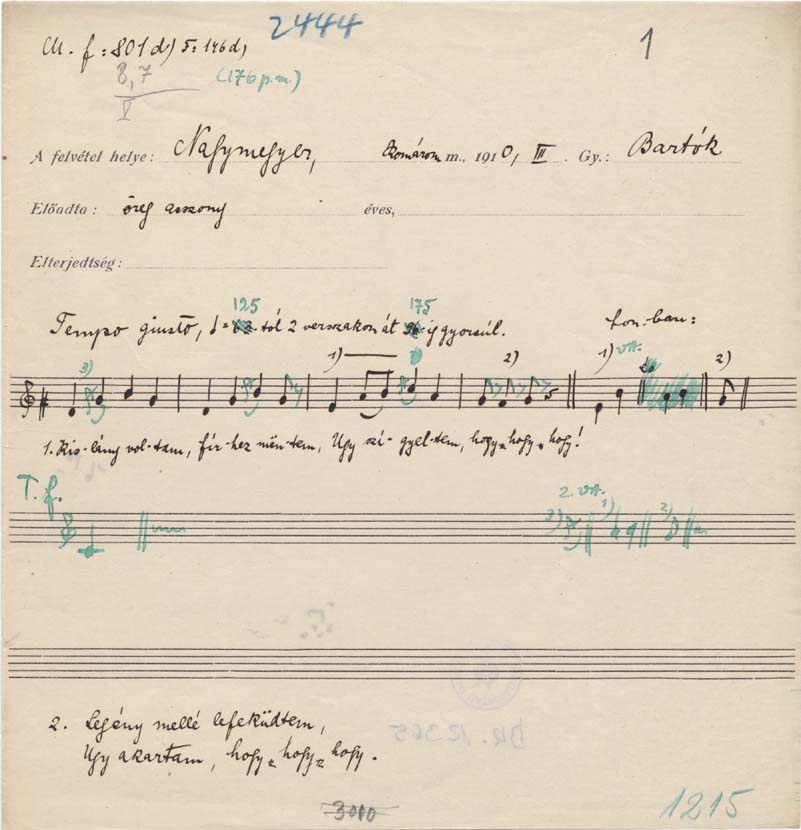 2444
1
M. f: 801 d) 5: 146 d,
8,7
V
(176 p.m.)
A felvétel helye: Nagymegyer, Komárom m., 1910, III. Gy.: Bartók
Előadta: öreg asszony éves,
Elterjedtség:
125 175
Tempo giusto, tól 2 verszakon át ig gyorsúl. fon-ban:
3) 1) 2) 1) 2)
1. Kis-lány vol-tam, fír-hez mën-tem, Ugy szí-gyel-tem, hogy hogy hogy!
T. f.
2. vsz.
3) 1) 2)
2. Legény mellé lefeküdtem,
Ugy akartam, hogy hogy hogy.
BR. 12365
3000
1215